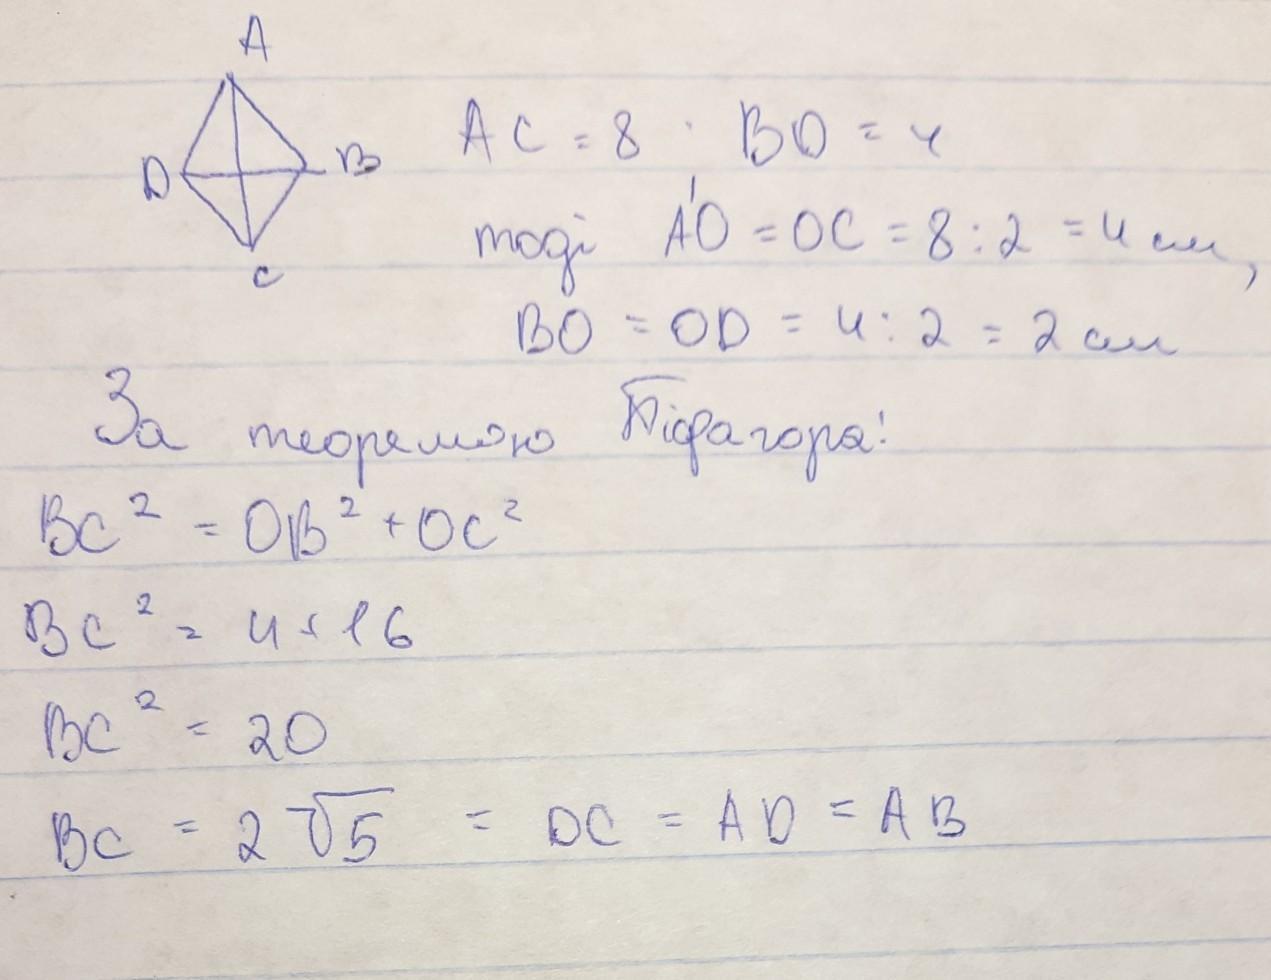 A
D
B
C
AC = 8 · BD = 4
тоді AO = OC = 8 : 2 = 4 см,
BO = OD = 4 : 2 = 2 см
За теоремою Піфагора:
BC² = OB² + OC²
BC² = 4 + 16
BC² = 20
BC = 2√5 = DC = AD = AB